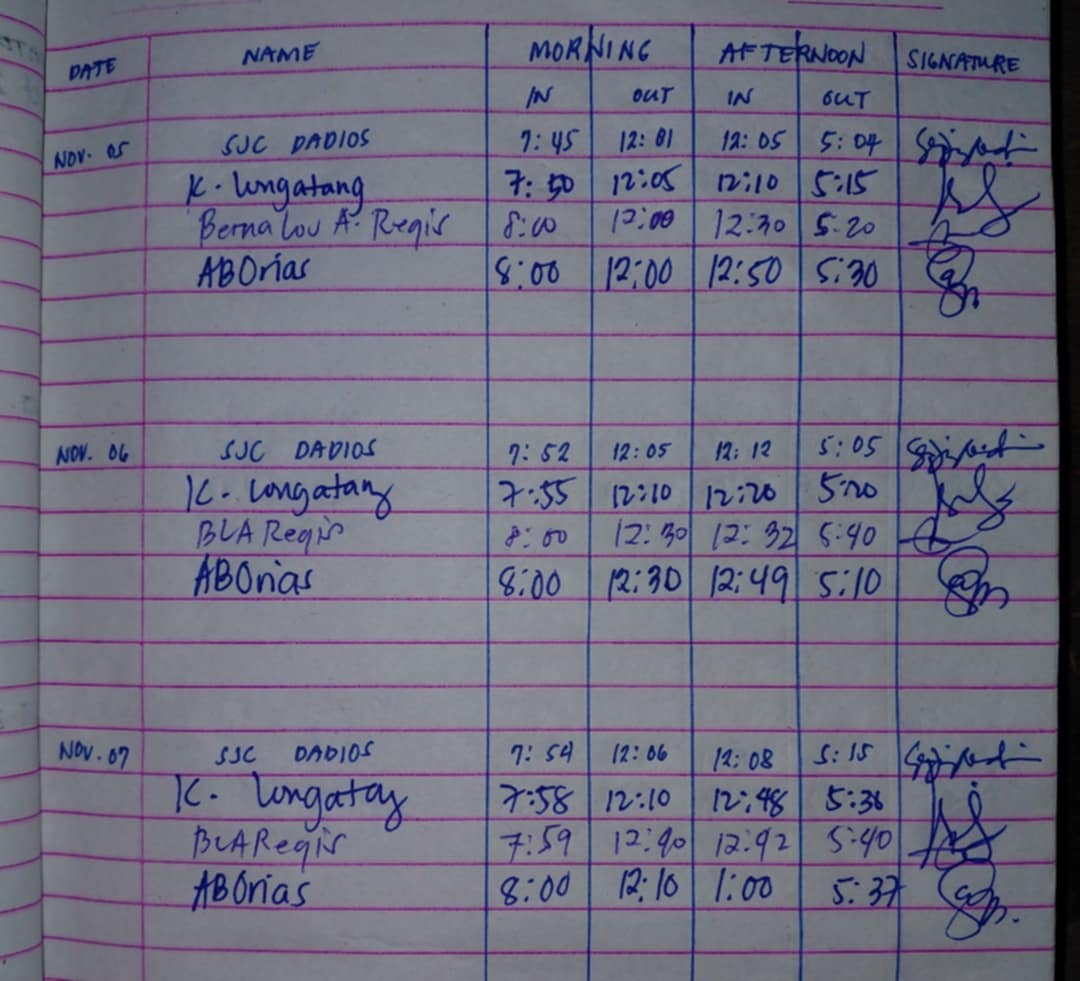 DATE NAME MORNING AFTERNOON SIGNATURE
IN OUT IN OUT
NOV. 05 SJC DADIOS 7:45 12:01 12:05 5:04
K. Longatang 7:50 12:05 12:10 5:15
Berna Lou A. Regis 8:00 12:00 12:30 5:20
ABOrias 8:00 12:00 12:50 5:30
NOV. 06 SJC DADIOS 7:52 12:05 12:12 5:05
K. Longatang 7:55 12:10 12:20 5:20
BLA Regis 8:00 12:30 12:32 5:40
ABOrias 8:00 12:30 12:49 5:10
NOV. 07 SJC DADIOS 7:54 12:06 12:08 5:15
K. Longatang 7:58 12:10 12:48 5:36
BLA Regis 7:59 12:40 12:42 5:40
ABOrias 8:00 12:10 1:00 5:37